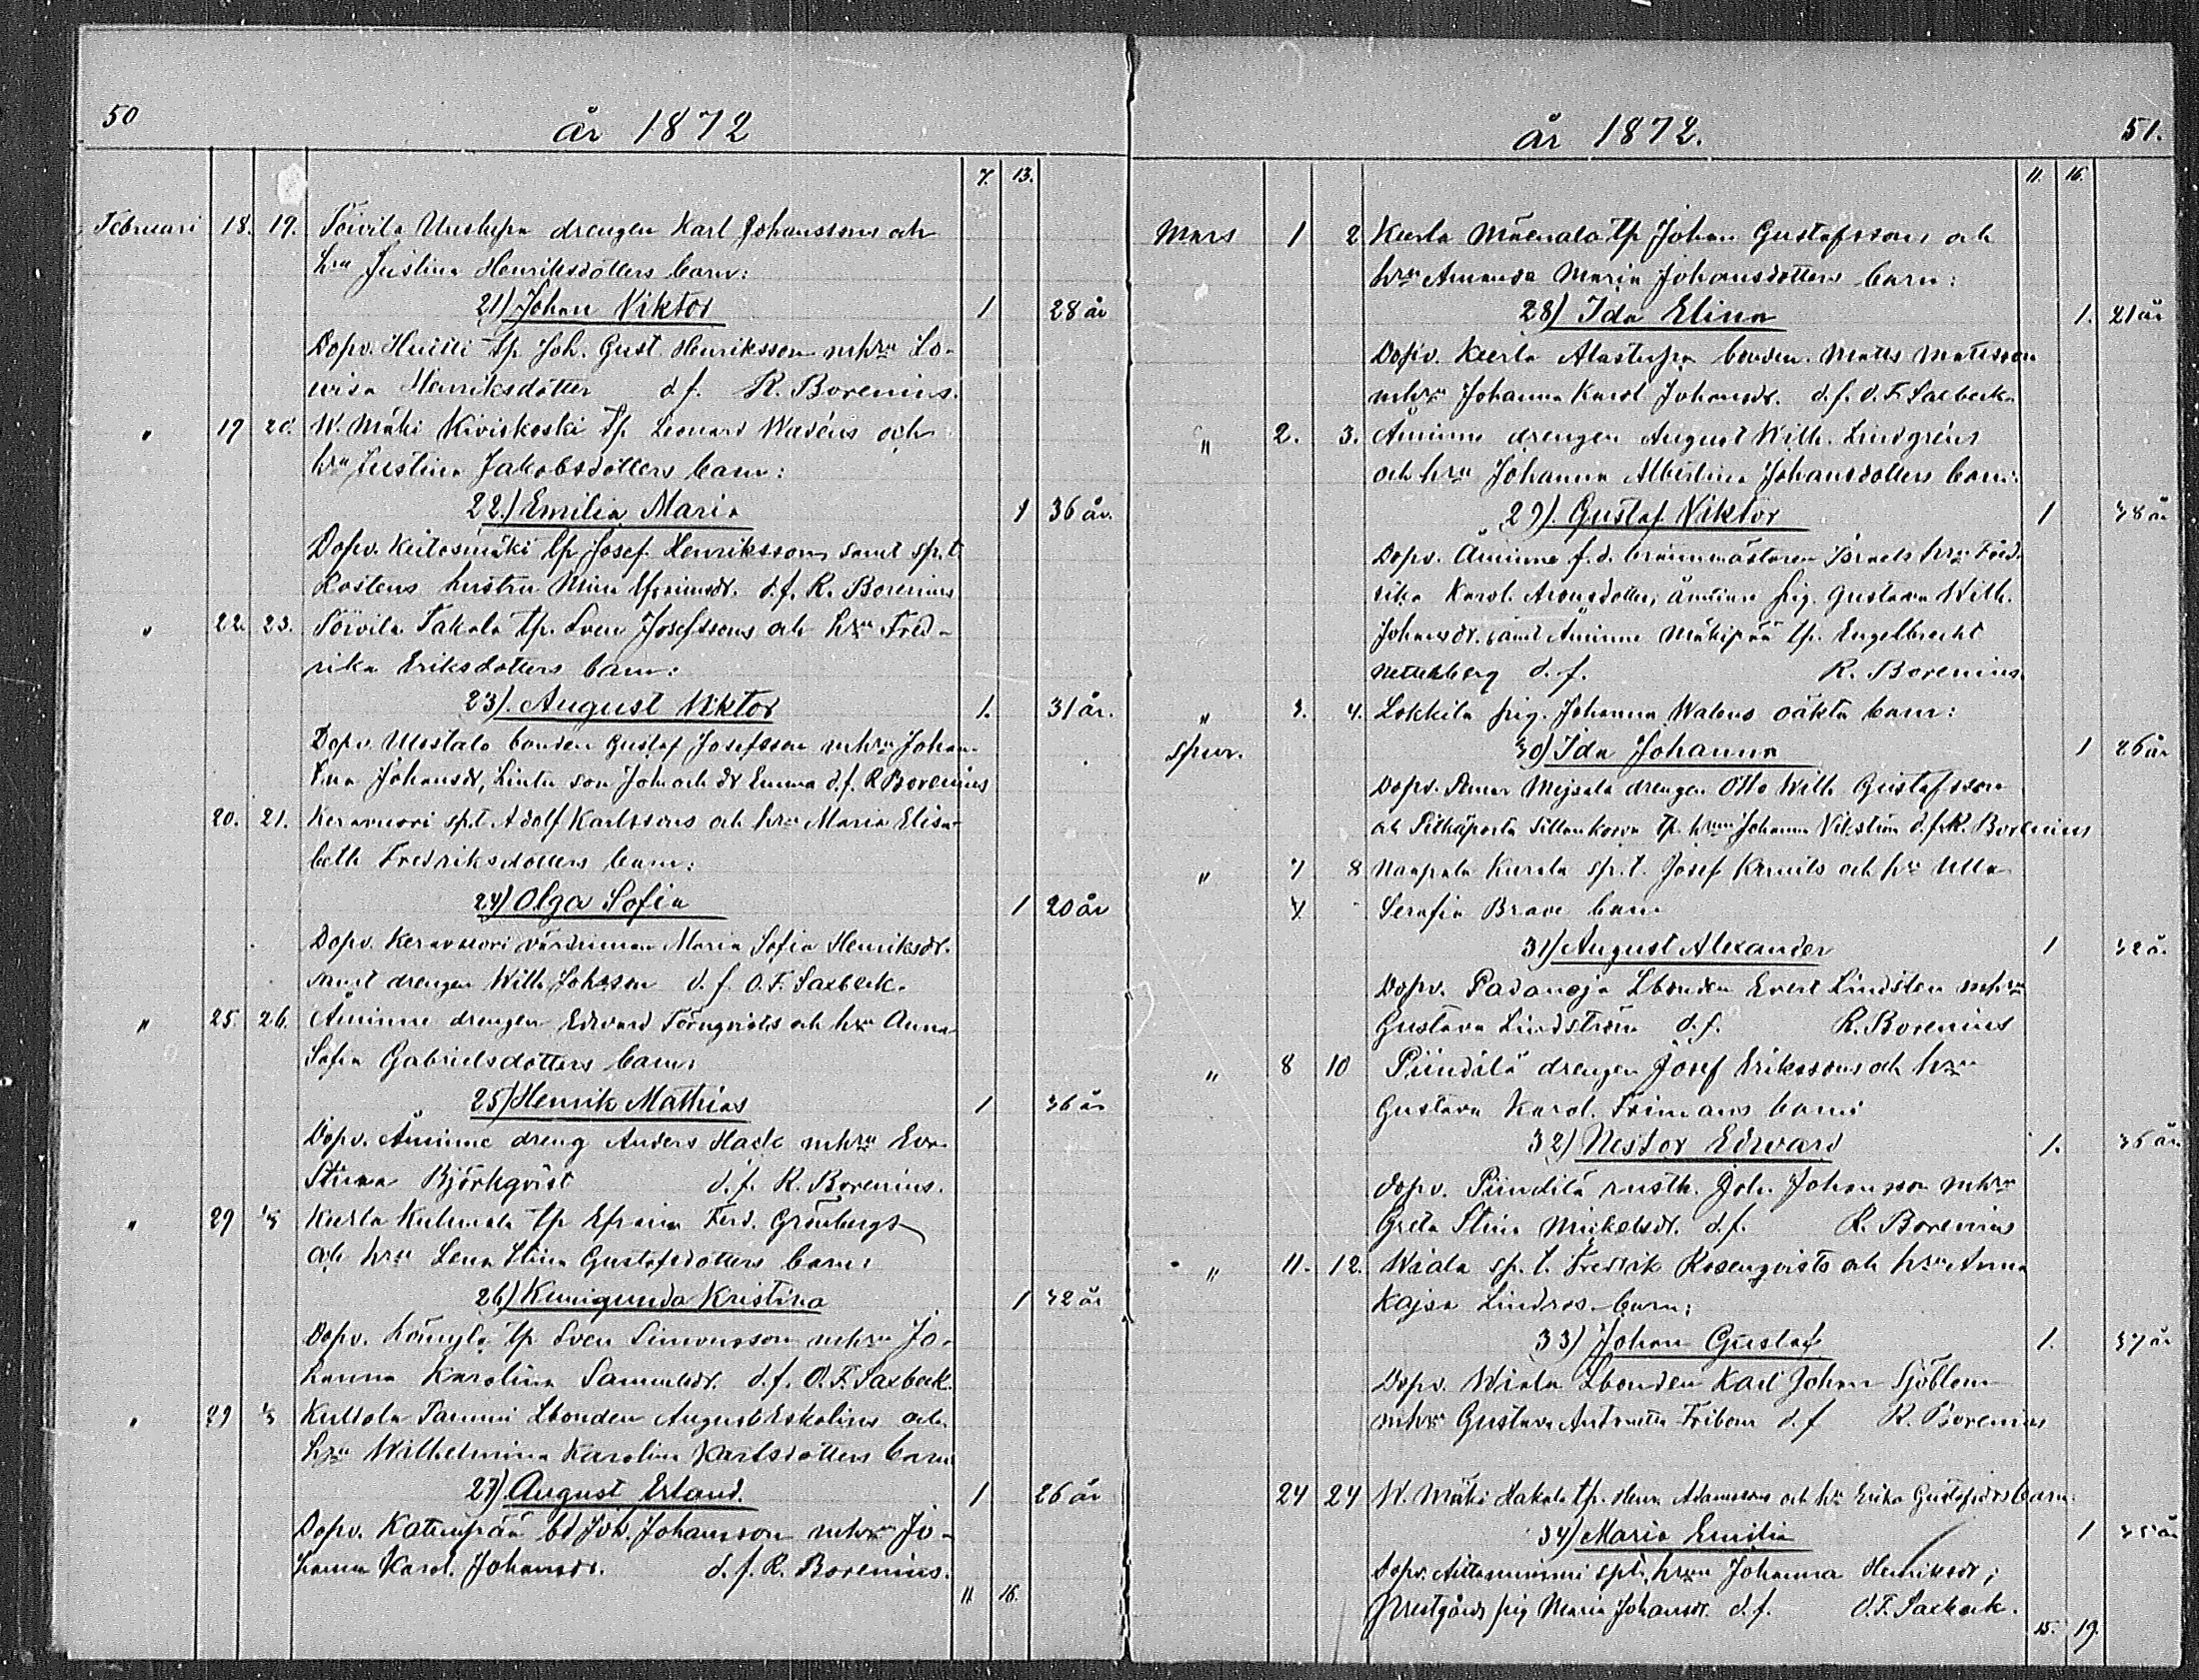 50
år 1872
7. 13.
Februari 18. 19. Töivila drengen Karl Johanssons och
hru Justina Henriksdotters barn:
21) Johan Viktor 1 28 år
Dopv. tp Joh. Gust. Henriksson mhru Lo-
visa Henriksdotter d.f. R. Borenius.
" 19 20. W. Mäki Kiviskoski tp Leonard Wadéns och
hru Justina Jakobsdotters barn:
22.) Emilia Maria 1 36 år.
Dopv. Keitosmäki tp Josef Henriksson samt sp.t
Rostens hustru Mina d.f. R. Borenius
" 22. 23. Töivila Takala tp. Sven Josefssons och hru Fred-
rika Eriksdotters barn:
23). August Viktor 1. 31 år.
Dopv. Uotalo bonden Gustaf Josefsson mhru Johan-
na Johansdr, son Joh och dr Emma d.f. R Borenius
20. 21. Keravuori sp.t. Adolf Karlssons och hru Maria Elisa-
beth Fredriksdotters barn:
24) Olga Sofia 1 20 år
Dopv. Keravuori värdinnan Maria Sofia Henriksdr.
samt drengen Wilh. Johsson d.f. O.F. Saxbeck.
" 25. 26. Åminne drengen Edvard Törnqvists och hru Anna
Sofia Gabrielsdotters barn:
25) Henrik Mathias 1 36 år
Dopv. Åminne dreng Anders Hack mhru Eva
Stina Björkqvist d.f. R. Borenius.
" 29 1/3 Kurla Kulmala tp Efraim Ferd. Grönbergs
och hru Lena Stina Gustafsdotters barn:
26) Kunigunda Kristina 1 32 år
Dopv. tp Sven Simonsson mhru Jo-
hanna Karolina Samuelsdr. d.f. O.F. Saxbeck.
" 29 1/3 Kultola Tammi Lbonden August Eskolins och
hru Wilhelmina Karolina Karlsdotters barn
27) August Erland. 1 26 år
Dopv. Katinpää bd Joh. Johansson mhru Jo-
hanna Karol. Johansdr. d.f. R. Borenius.
11 16.
år 1872. 51.
11. 16.
Mars 1 2 Kurla Mäenala tp Johan Gustafssons och
hru Amanda Maria Johansdotters barn:
28) Ida Elina 1. 21 år
Dopv. Kurla Alastupa bonden Matts Mattsson
mhru Johanna Karol Johansdr. d.f. O.F. Saxbeck
" 2. 3. Åminne drengen August Wilh. Lindgréns
och hru Johanna Albertina Johansdotters barn:
29). Gustaf Viktor 1 38 år
Dopv. Åminne f.d. brännmästaren Israels hru Fred-
rika Karol. Aronsdotter, Åminne pig. Gustava Wilh.
Johansdr. samt Åminne Mäkipää tp. Engelbrecht
d.f. R. Borenius.
" 3. 4. Lokkila pig. Johanna Walens oäkta barn:
spur. 30) Ida Johanna 1 26 år
Dopv. drengen Otto Wilh. Gustafsson
och Pitkäporta Sillankorva tp. hru Johanna Vikström d.f. R. Borenius
" 7 8 Naapala Kurala sp.t. Josef Krails och hru Ulla
Serafia Brave barn
31) August Alexander 1 32 år.
Dopv. Padanoja Lbonden Evert Lindsten mhru
Gustava Lindström d.f. R. Borenius
" 8 10 Piindilä drengen Josef Erikssons och hru
Gustava Karol. Frimans barn:
32) Nestor Edvard 1. 36 år
Dopv. Piindilä rusth. Joh. Johansson mhru
Greta Stina Mickelsdr. d.f. R. Borenius
" 11. 12. Wiala sp.t. Fredrik Rosenqvists och hru Anna
Kajsa Lindros barn:
33) Johan Gustaf 1. 37 år
Dopv. Wiala Lbonden Karl Johan Sjöblom
mhru Gustava Antonetta Fribom d.f R. Borenius
24 24 W. Mäki Hakala tp. Henr. Adamssons och hru Erika Gustafsdrs barn
34) Maria Emilia 1 35 år
Dopv. sptr. hru Johanna Henriksdr;
Prestgårds pig Maria Johansdr. d.f. O.F. Saxbeck.
15. 19.